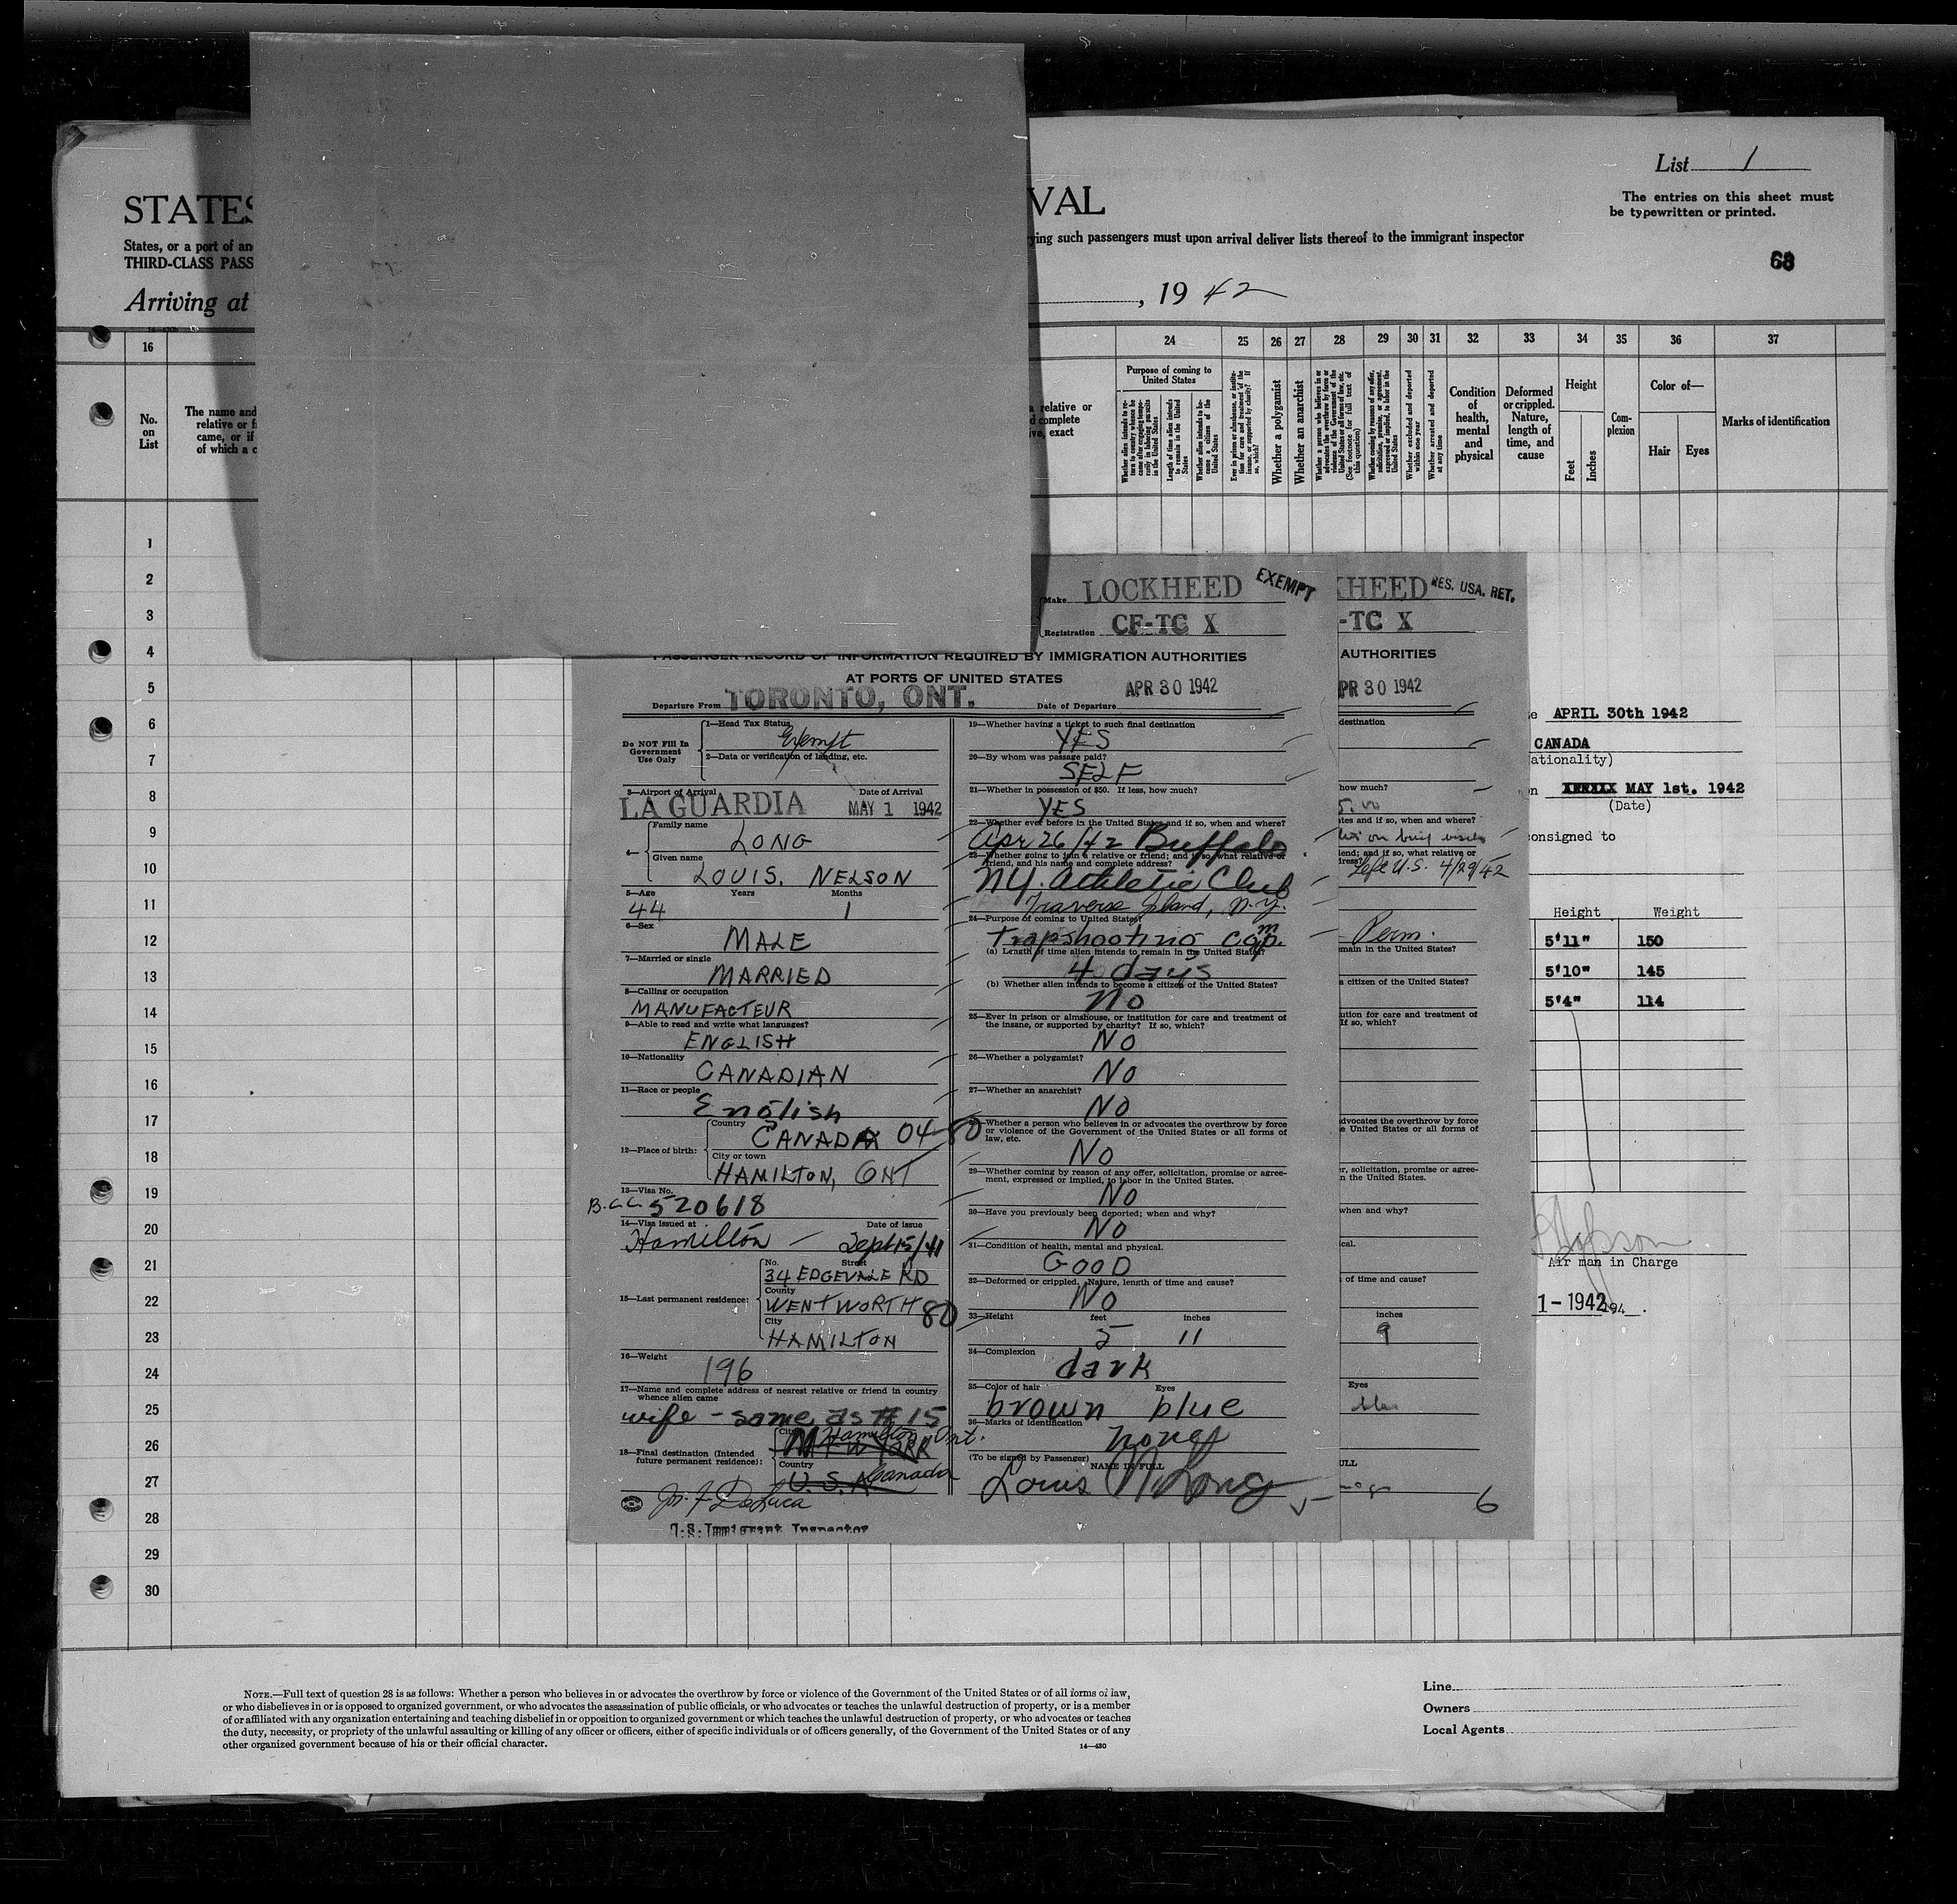 List 1
The entries on this sheet must
be typewritten or printed.
68
STATES
VAL
States, or a port of an
rying such passengers must upon arrival deliver lists thereof to the immigrant inspector
THIRD-CLASS PASS
Arriving at
, 19 42
16 24 25 26 27 28 29 30 31 32 33 34 35 36 37
No.
on
List
The name and
relative or f
came, or if
of which a c
a relative or
d complete
ive, exact
Purpose of coming to
United States
Whether alien intends to re-
turn to country whence he
came after engaging tempo-
rarily in laboring pursuits
in the United States
Length of time alien intends
to remain in the United
States
Whether alien intends to be-
come a citizen of the
United States
Ever in prison or almshouse, or institu-
tion for care and treatment of the
insane, or supported by charity? If
so, which?
Whether a polygamist
Whether an anarchist
Whether a person who believes in or
advocates the overthrow by force or
violence of the Government of the
United States or all forms of law, etc.
(See footnote for full text of
this question)
Whether coming by reason of any offer,
solicitation, promise, or agreement,
expressed or implied, to labor in the
United States
Whether excluded and deported
within one year
Whether arrested and deported
at any time
Condition
of
health,
mental
and
physical
Deformed
or crippled.
Nature,
length of
time, and
cause
Height
Feet
Inches
Com-
plexion
Color of—
Hair Eyes
Marks of identification
1
2
3
4
5
6
7
8
9
10
11
12
13
14
15
16
17
18
19
20
21
22
23
24
25
26
27
28
29
30
Make LOCKHEED EXEMPT
Registration CF-TC X
PASSENGER RECORD OF INFORMATION REQUIRED BY IMMIGRATION AUTHORITIES
AT PORTS OF UNITED STATES
Departure From TORONTO, ONT. Date of Departure APR 30 1942
Do NOT Fill In
Government
Use Only
1—Head Tax Status
Exempt
2—Data or verification of landing, etc.
3—Airport of Arrival Date of Arrival
LA GUARDIA MAY 1 1942
4—
Family name
LONG
Given name
LOUIS. NELSON
5—Age Years Months
44 1
6—Sex
MALE
7—Married or single
MARRIED
8—Calling or occupation
MANUFACTEUR
9—Able to read and write what languages?
ENGLISH
10—Nationality
CANADIAN
11—Race or people
English
12—Place of birth:
Country
CANADA 04-80
City or town
HAMILTON, ONT
13—Visa No.
B.C.C. 520618
14—Visa issued at Date of issue
Hamilton — Sept 15/41
15—Last permanent residence:
No. Street
34 EDGEVALE RD
County
WENTWORTH 80
City
HAMILTON
16—Weight
196
17—Name and complete address of nearest relative or friend in country
whence alien came
wife - same as # 15
18—Final destination (Intended
future permanent residence):
City
Hamilton Ont.
NEW YORK
Country
U. S. A. Canada
Jos. F. DeLuca
U.S. Immigrant Inspector
19—Whether having a ticket to such final destination
YES
20—By whom was passage paid?
SELF
21—Whether in possession of $50. If less, how much?
YES
22—Whether ever before in the United States and if so, when and where?
Apr 26/42 Buffalo
23—Whether going to join a relative or friend; and if so, what relative or
friend, and his name and complete address?
NY. Athletic Club
Traverse Island, N.Y.
24—Purpose of coming to United States?
Trapshooting comp.
(a) Length of time alien intends to remain in the United States?
4 days
(b) Whether alien intends to become a citizen of the United States?
No
25—Ever in prison or almshouse, or institution for care and treatment of
the insane, or supported by charity? If so, which?
No
26—Whether a polygamist?
No
27—Whether an anarchist?
No
Whether a person who believes in or advocates the overthrow by force
or violence of the Government of the United States or all forms of
law, etc.
No
29—Whether coming by reason of any offer, solicitation, promise or agree-
ment, expressed or implied, to labor in the United States.
No
30—Have you previously been deported; when and why?
No
31—Condition of health, mental and physical.
GOOD
32—Deformed or crippled. Nature, length of time and cause?
No
33—Height feet inches
5 11
34—Complexion
dark
35—Color of hair Eyes
brown blue
36—Marks of identification
none
(To be signed by Passenger) NAME IN FULL
Louis N Long
KHEED RES. USA. RET.
-TC X
AUTHORITIES
PR 30 1942
destination
how much?
5.00
tes and if so, when and where?
on brief visits
iend; and if so, what relative or
iress?
Left U.S. 4/29/42
Perm.
main in the United States?
a citizen of the United States?
ution for care and treatment of
If so, which?
advocates the overthrow by force
e United States or all forms of
r, solicitation, promise or agree-
n the United States.
when and why?
ical.
of time and cause?
inches
9
Eyes
blue
ULL
6
e APRIL 30th 1942
CANADA
ationality)
n XXXXXX MAY 1st. 1942
(Date)
onsigned to
Height Weight
5'11" 150
5'10" 145
5'4" 114
Air man in Charge
1-1942 194 .
NOTE.—Full text of question 28 is as follows: Whether a person who believes in or advocates the overthrow by force or violence of the Government of the United States or of all forms of law,
or who disbelieves in or is opposed to organized government, or who advocates the assassination of public officials, or who advocates or teaches the unlawful destruction of property, or is a member
of or affiliated with any organization entertaining and teaching disbelief in or opposition to organized government or which teaches the unlawful destruction of property, or who advocates or teaches
the duty, necessity, or propriety of the unlawful assaulting or killing of any officer or officers, either of specific individuals or of officers generally, of the Government of the United States or of any
other organized government because of his or their official character.
14—430
Line
Owners
Local Agents